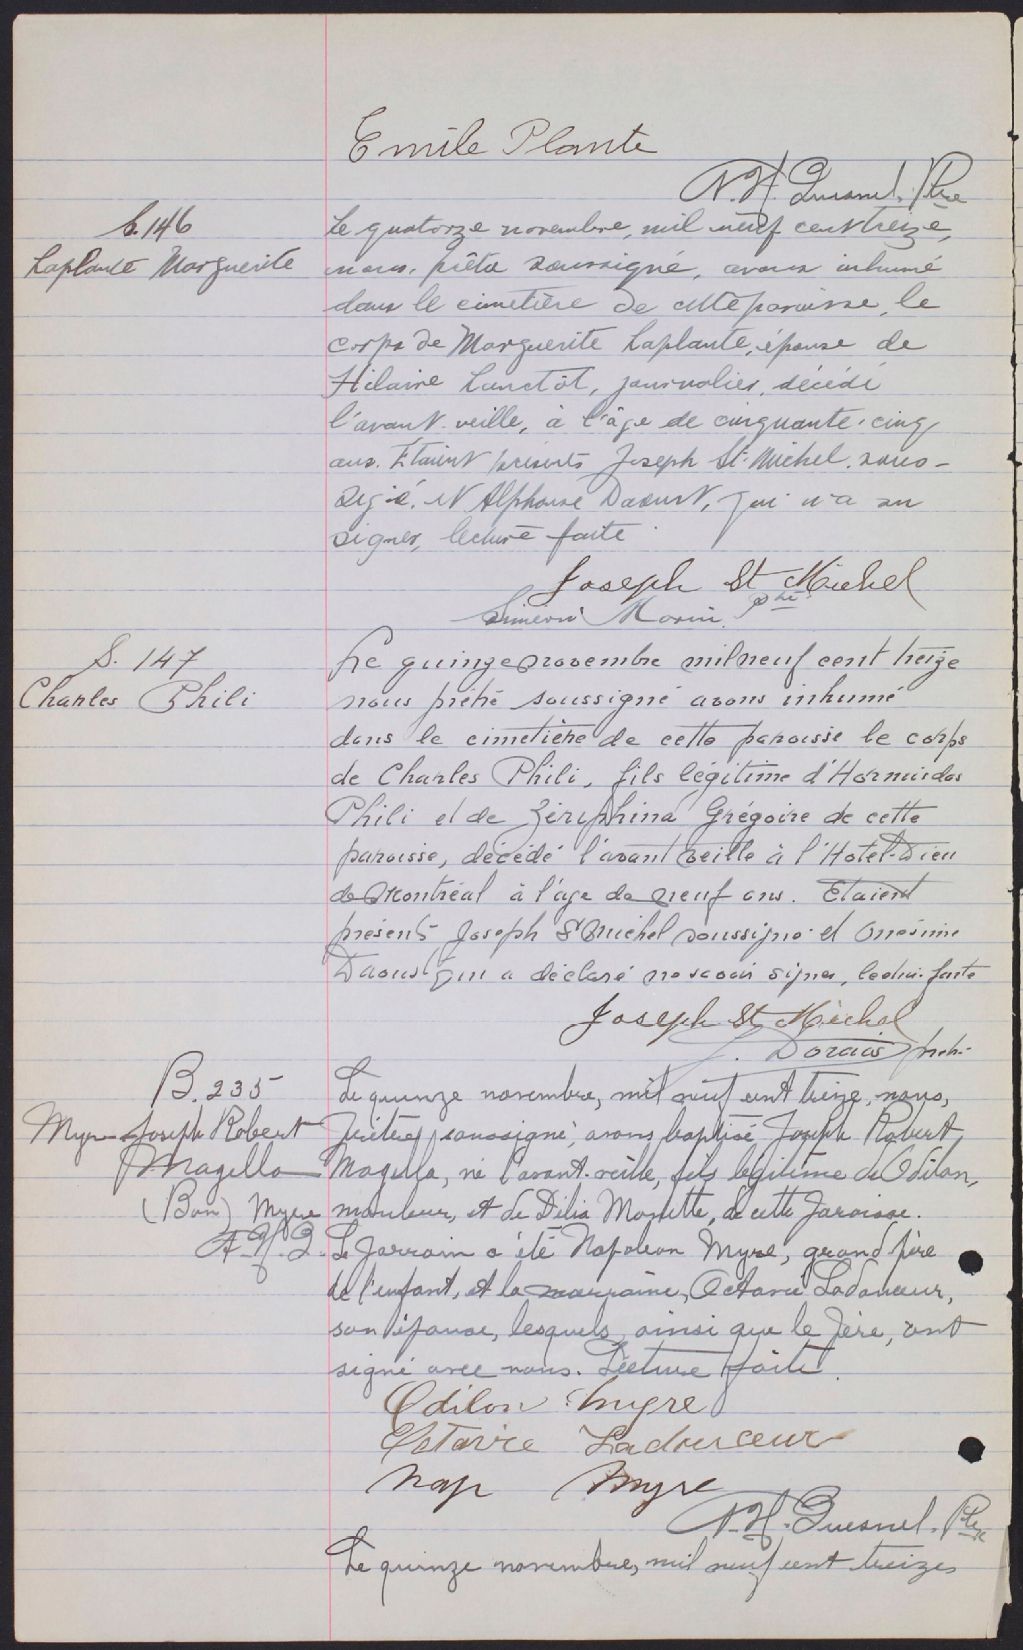 Emile Plante
A. H. Quesnel. Ptre
S. 146
Laplante Marguerite
Le quatorze novembre, mil neuf cent treize,
nous, prêtre soussigné, avons inhumé
dans le cimetière de cette paroisse, le
corps de Marguerite Laplante, épouse de
Hilaire Lanctôt, journalier, décédé
l'avant-veille, à l'âge de cinquante-cinq
ans. Étaient présents Joseph St-Michel, sous-
signé, et Alphonse Daoust, qui n'a su
signer, lecture faite
Joseph St Michel
Siméon Morin ptre
S. 147
Charles Phili
Le quinze novembre mil neuf cent treize
nous prêtre soussigné avons inhumé
dans le cimetière de cette paroisse le corps
de Charles Phili, fils légitime d'Hormidas
Phili et de Zériphina Grégoire de cette
paroisse, décédé l'avant veille à l'Hotel-Dieu
de Montréal à l'âge de neuf ans. Etaient
présents Joseph St Michel soussigné et Onésime
Daoust qui a déclaré ne savoir signer, lecture faite
Joseph St Michel
J. Dorais prêtre
B. 235
Myre Joseph Robert
Magella
(Bon) Myre
A. H. Q.
Le quinze novembre, mil neuf cent treize, nous,
prêtre, soussigné, avons baptisé Joseph Robert
Magella, né l'avant-veille, fils légitime de Odilon,
mouleur, et de Délia Monette, de cette paroisse.
Le parrain a été Napoleon Myre, grand père
de l'enfant, et la marraine, Octavie Ladouceur,
son épouse, lesquels, ainsi que le père, ont
signé avec nous. Lecture faite.
Odilon Myre
Octavie Ladouceur
Nap Myre
A. H. Quesnel. Ptre
Le quinze novembre, mil neuf cent treize,